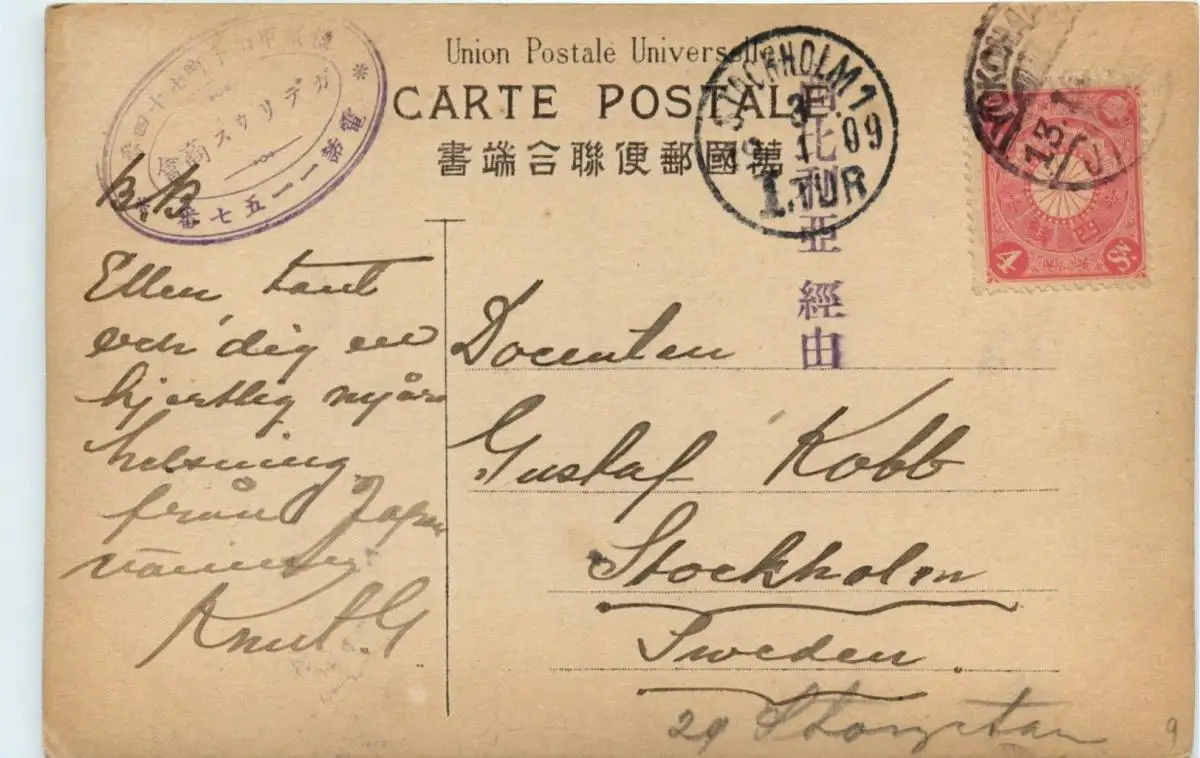 Union Postale Universelle
CARTE POSTALE
書端合聯便郵國萬
ガデリウス商會
電話一一五七番
STOCKHOLM 1
3
1
09
1. TUR
西比利亞 經由
YOKOHAMA
13.1
4 Sn.
B.B
Ellen tant
och dig en
hjertlig nyårs
helsning
från Japan
Knut. G
Docenten
Gustaf Kobb
Stockholm
Sweden.
29 Storgatan
9